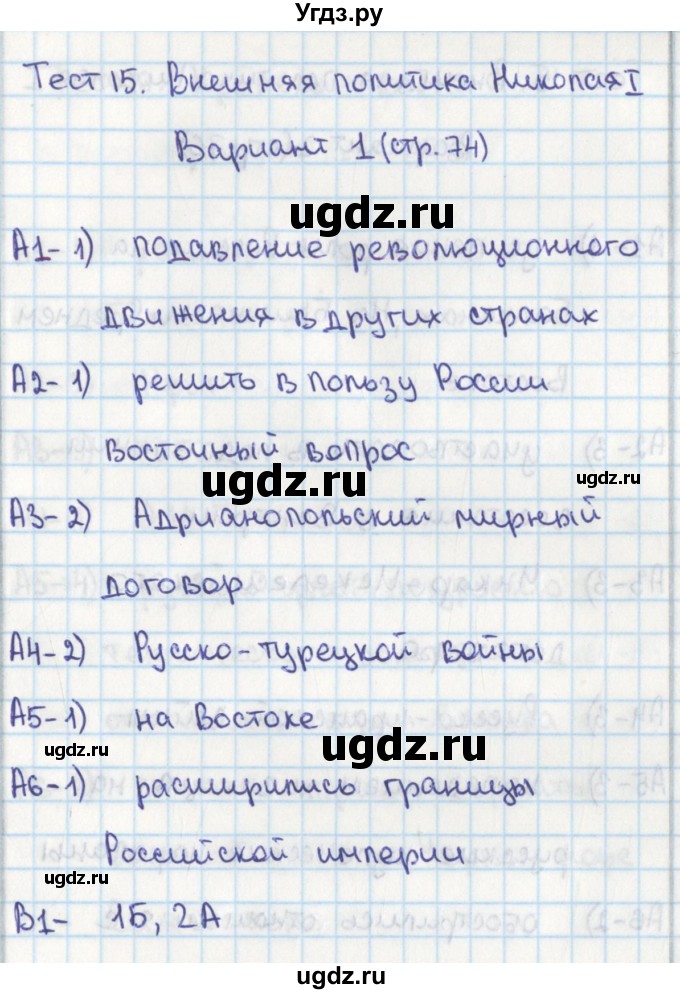 Угдз.ру
Тест 15. Внешняя политика Николая I
Вариант 1 (стр. 74)
ugdz.ru
А1- 1) подавление революционного
движения в других странах
А2- 1) решить в пользу России
восточный вопрос
ugdz.ru
ugdz.ru
А3- 2) Адрианопольский мирный
договор
А4- 2) Русско-турецкой войны
А5- 1) на Востоке
ugdz.ru
ugdz.ru
А6- 1) расширились границы
Российской империи
ugdz.ru
В1- 1Б, 2А
ugdz.ru